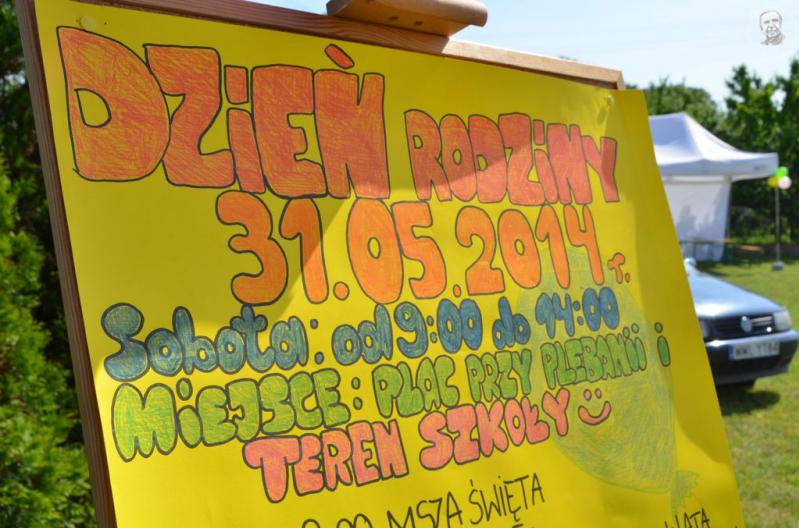 DZIEŃ RODZINY
31.05.2014 r.
Sobota: od 9:00 do 14:00
MIEJSCE: PLAC PRZY PLEBANII i
TEREN SZKOŁY
MSZA ŚWIĘTA